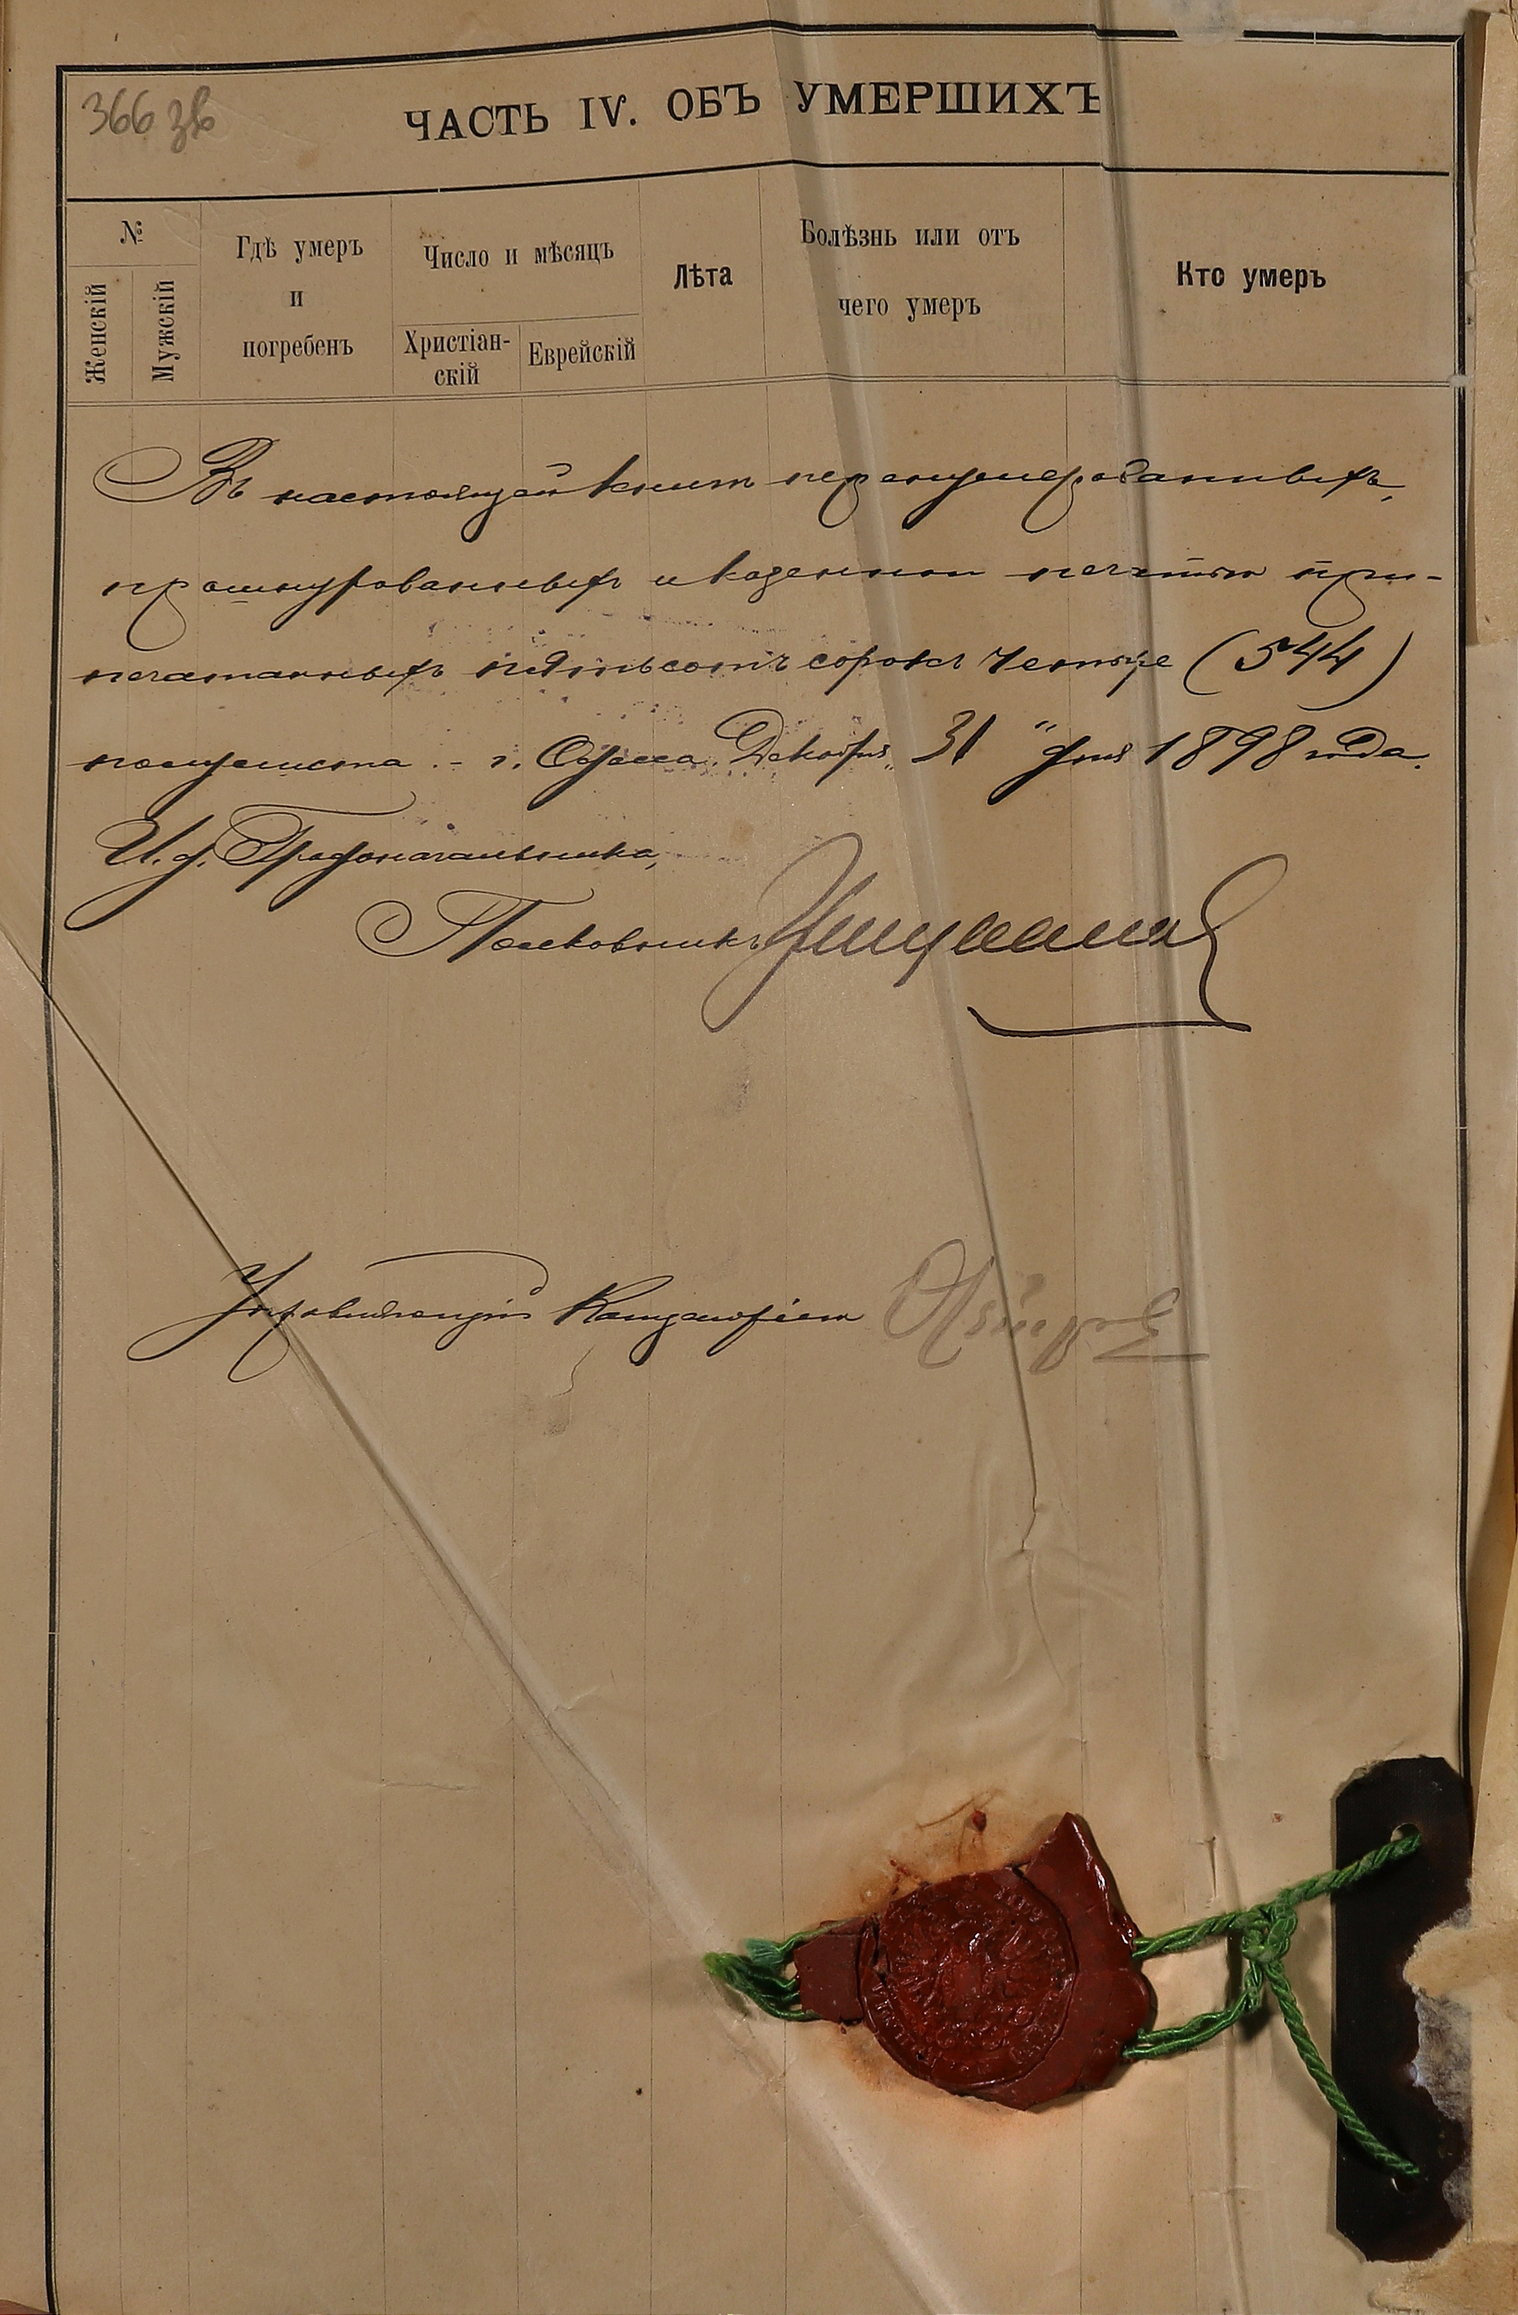 366 зв
ЧАСТЬ IV. ОБЪ УМЕРШИХЪ
№
Женскій
Мужскій
Гдѣ умеръ
и
погребенъ
Число и мѣсяцъ
Христіан-
скій
Еврейскій
Лѣта
Болѣзнь или отъ
чего умеръ
Кто умеръ
Въ настоящей книгѣ перенумерованныхъ,
прошнурованныхъ и казенною печатью при-
печатанныхъ пятьсотъ сорокъ четыре (544)
полулиста. - г. Одесса. Декабря „31" дня 1898 года.
И. д. Градоначальника,
Полковникъ
Управляющій Канцеляріею